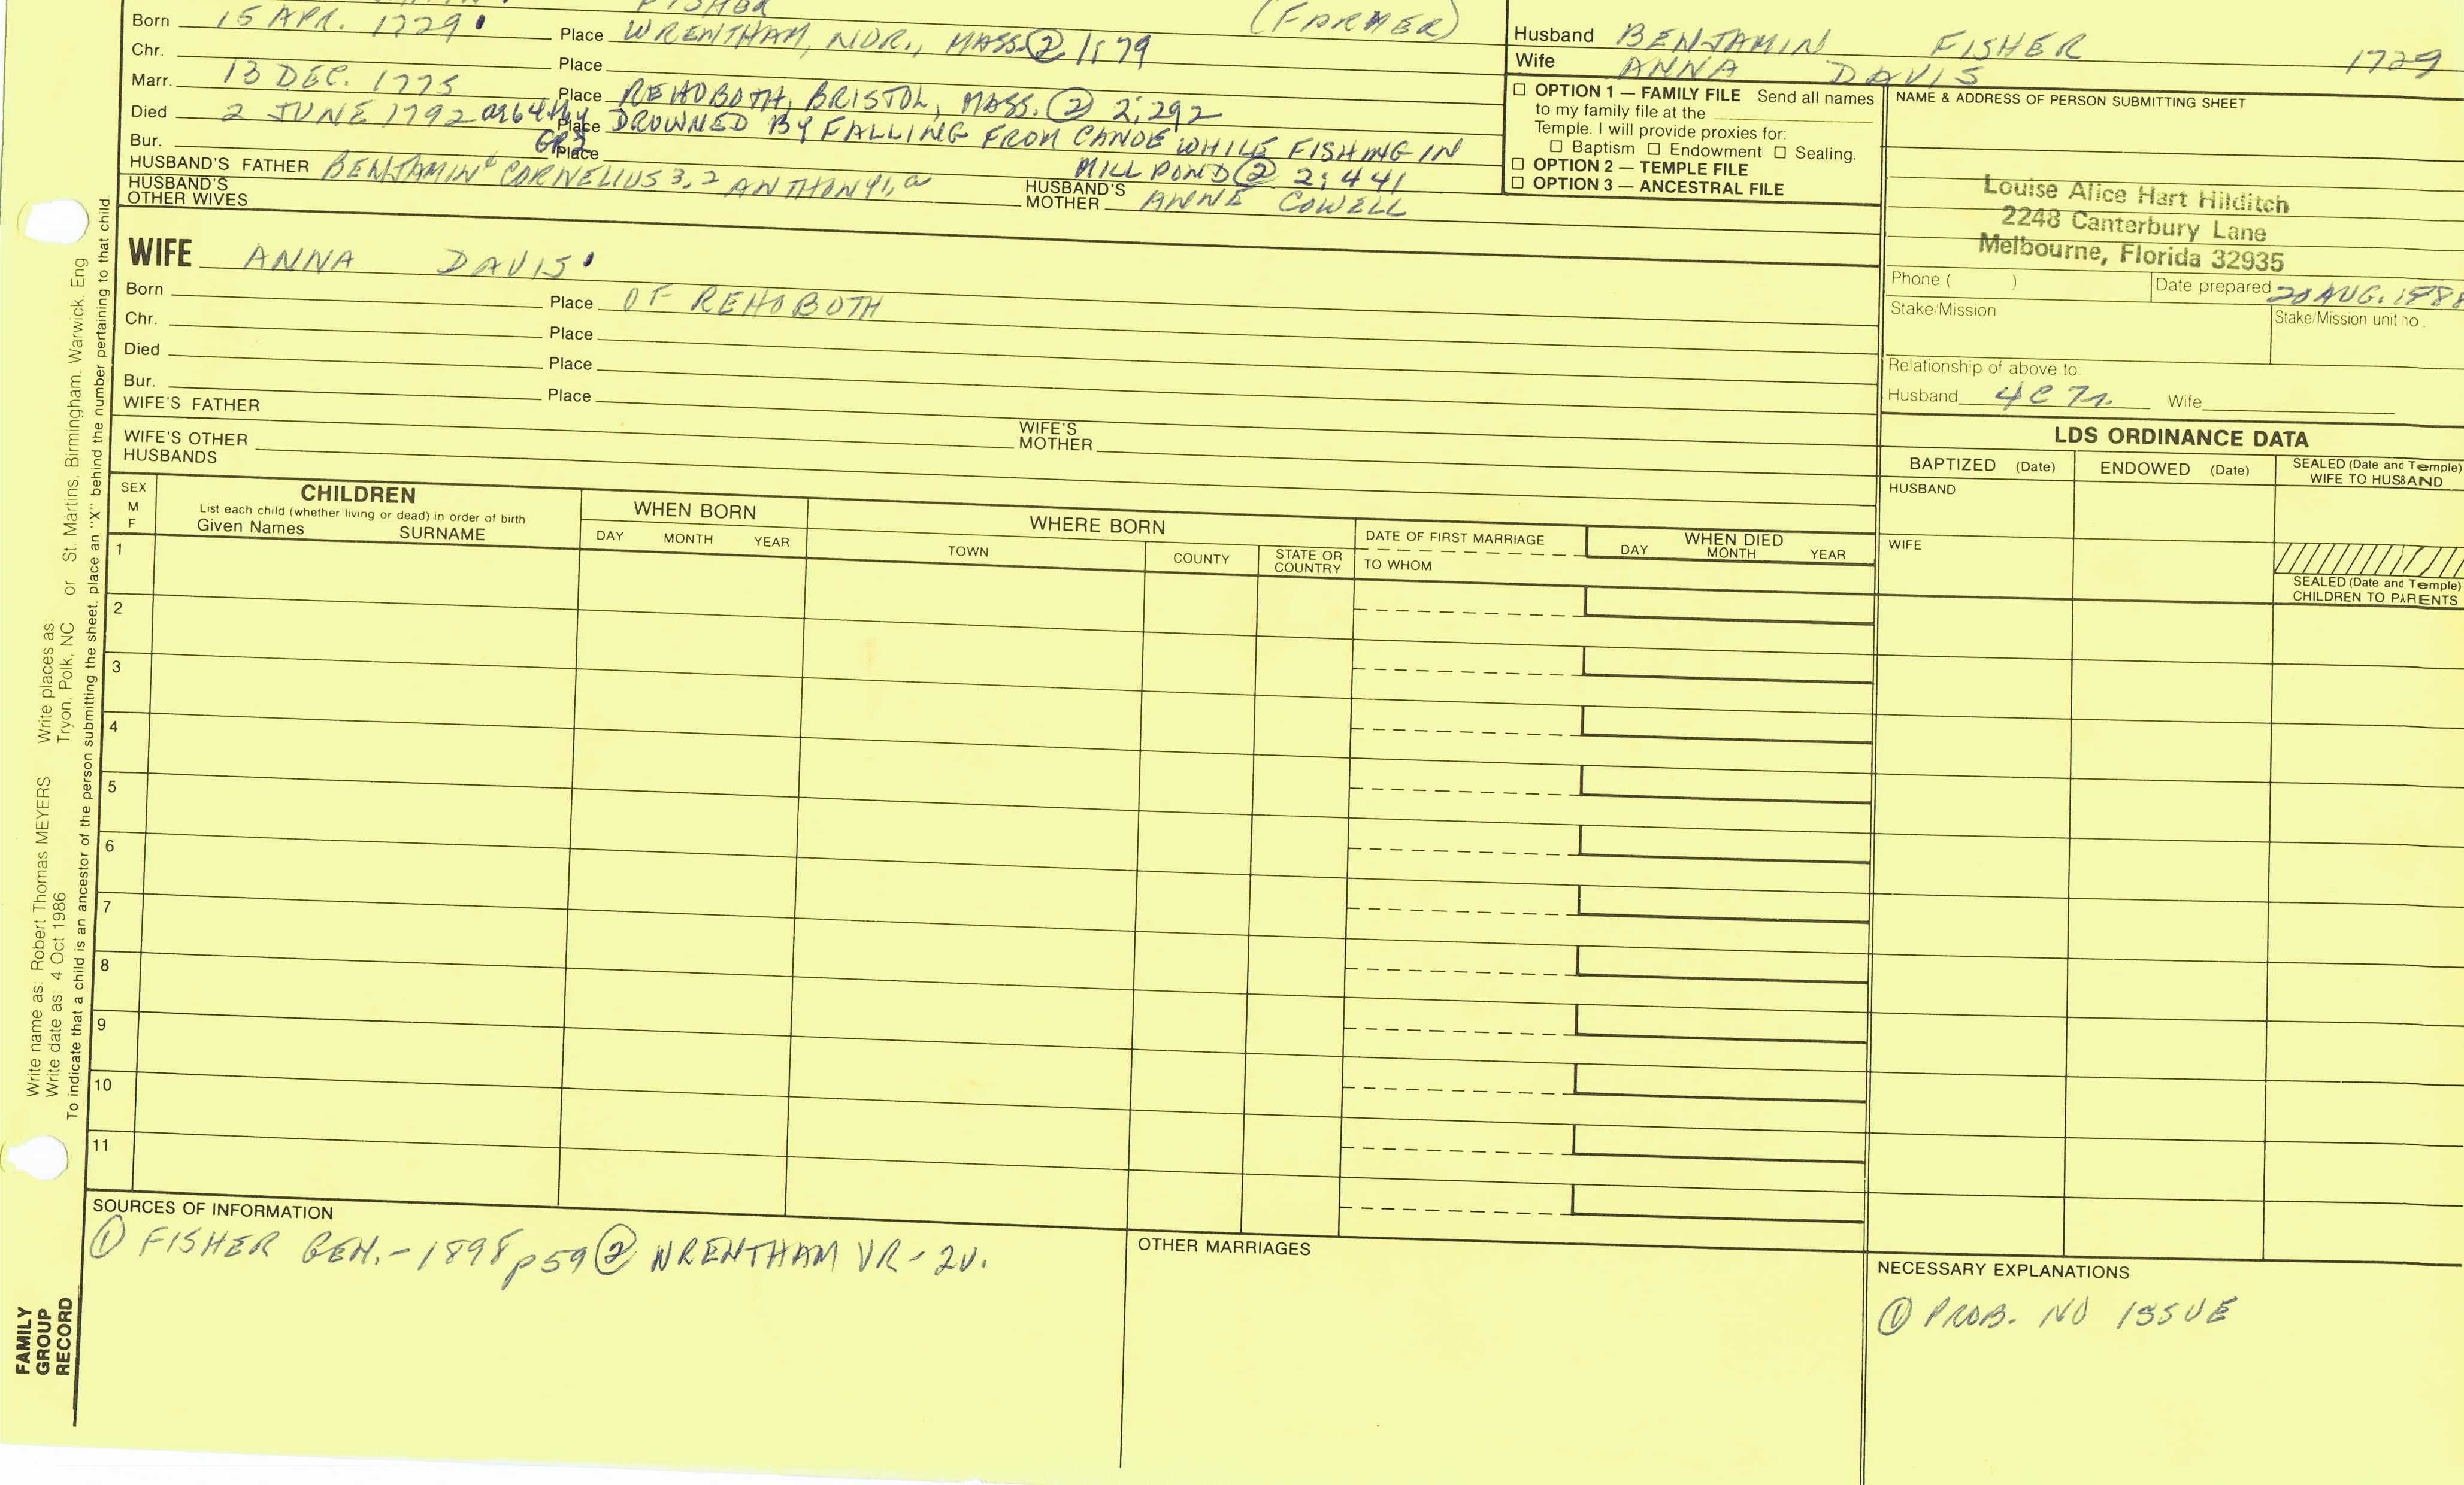 FISHER (FARMER)
Born 15 APR. 1729 Place WRENTHAM, NOR., MASS. ② 1:79
Chr. Place
Marr. 13 DEC. 1775 Place REHOBOTH, BRISTOL, MASS. ② 2:292
Died 2 JUNE 1792 Place DROWNED BY FALLING FROM CANOE WHILE FISHING IN
Bur. GR2 Place MILL POND ② 2:441
HUSBAND'S FATHER BENJAMIN⁴ CORNELIUS 3,2 ANTHONY 1,a
HUSBAND'S MOTHER ANNE COWELL
HUSBAND'S OTHER WIVES
WIFE ANNA DAVIS
Born Place OF REHOBOTH
Chr. Place
Died Place
Bur. Place
WIFE'S FATHER
WIFE'S MOTHER
WIFE'S OTHER HUSBANDS
Husband BENJAMIN FISHER 1729
Wife ANNA DAVIS
☐ OPTION 1 — FAMILY FILE Send all names
to my family file at the
Temple. I will provide proxies for:
☐ Baptism ☐ Endowment ☐ Sealing.
☐ OPTION 2 — TEMPLE FILE
☐ OPTION 3 — ANCESTRAL FILE
NAME & ADDRESS OF PERSON SUBMITTING SHEET
Louise Alice Hart Hilditch
2248 Canterbury Lane
Melbourne, Florida 32935
Phone ( ) Date prepared 20 AUG. 1988
Stake/Mission Stake/Mission unit no.
Relationship of above to
Husband 4C7r. Wife
LDS ORDINANCE DATA
BAPTIZED (Date) ENDOWED (Date) SEALED (Date and Temple)
WIFE TO HUSBAND
HUSBAND
WIFE
SEALED (Date and Temple)
CHILDREN TO PARENTS
SEX
M
F
CHILDREN
List each child (whether living or dead) in order of birth
Given Names SURNAME
WHEN BORN
DAY MONTH YEAR
WHERE BORN
TOWN COUNTY STATE OR COUNTRY
DATE OF FIRST MARRIAGE
TO WHOM
WHEN DIED
DAY MONTH YEAR
1
2
3
4
5
6
7
8
9
10
11
SOURCES OF INFORMATION
① FISHER GEN. - 1898 p59 ② WRENTHAM VR - 2V.
OTHER MARRIAGES
NECESSARY EXPLANATIONS
① PROB. NO ISSUE
Write name as: Robert Thomas MEYERS Write places as:
Write date as: 4 Oct 1986 Tryon, Polk, NC or St. Martins, Birmingham, Warwick, Eng
To indicate that a child is an ancestor of the person submitting the sheet, place an "X" behind the number pertaining to that child.
FAMILY
GROUP
RECORD